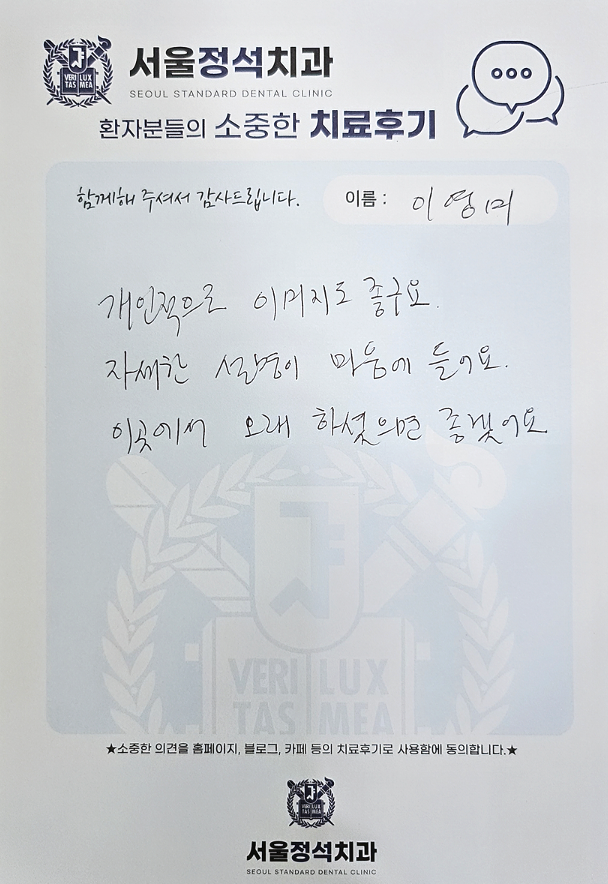 서울정석치과
SEOUL STANDARD DENTAL CLINIC
환자분들의 소중한 치료후기
함께해 주셔서 감사드립니다.
이름 : 이영미
개인적으로 이미지도 좋구요.
자세한 설명이 마음에 들어요.
이곳에서 오래 하셨으면 좋겠어요
VERI LUX
TAS MEA
★소중한 의견을 홈페이지, 블로그, 카페 등의 치료후기로 사용함에 동의합니다.★
서울정석치과
SEOUL STANDARD DENTAL CLINIC